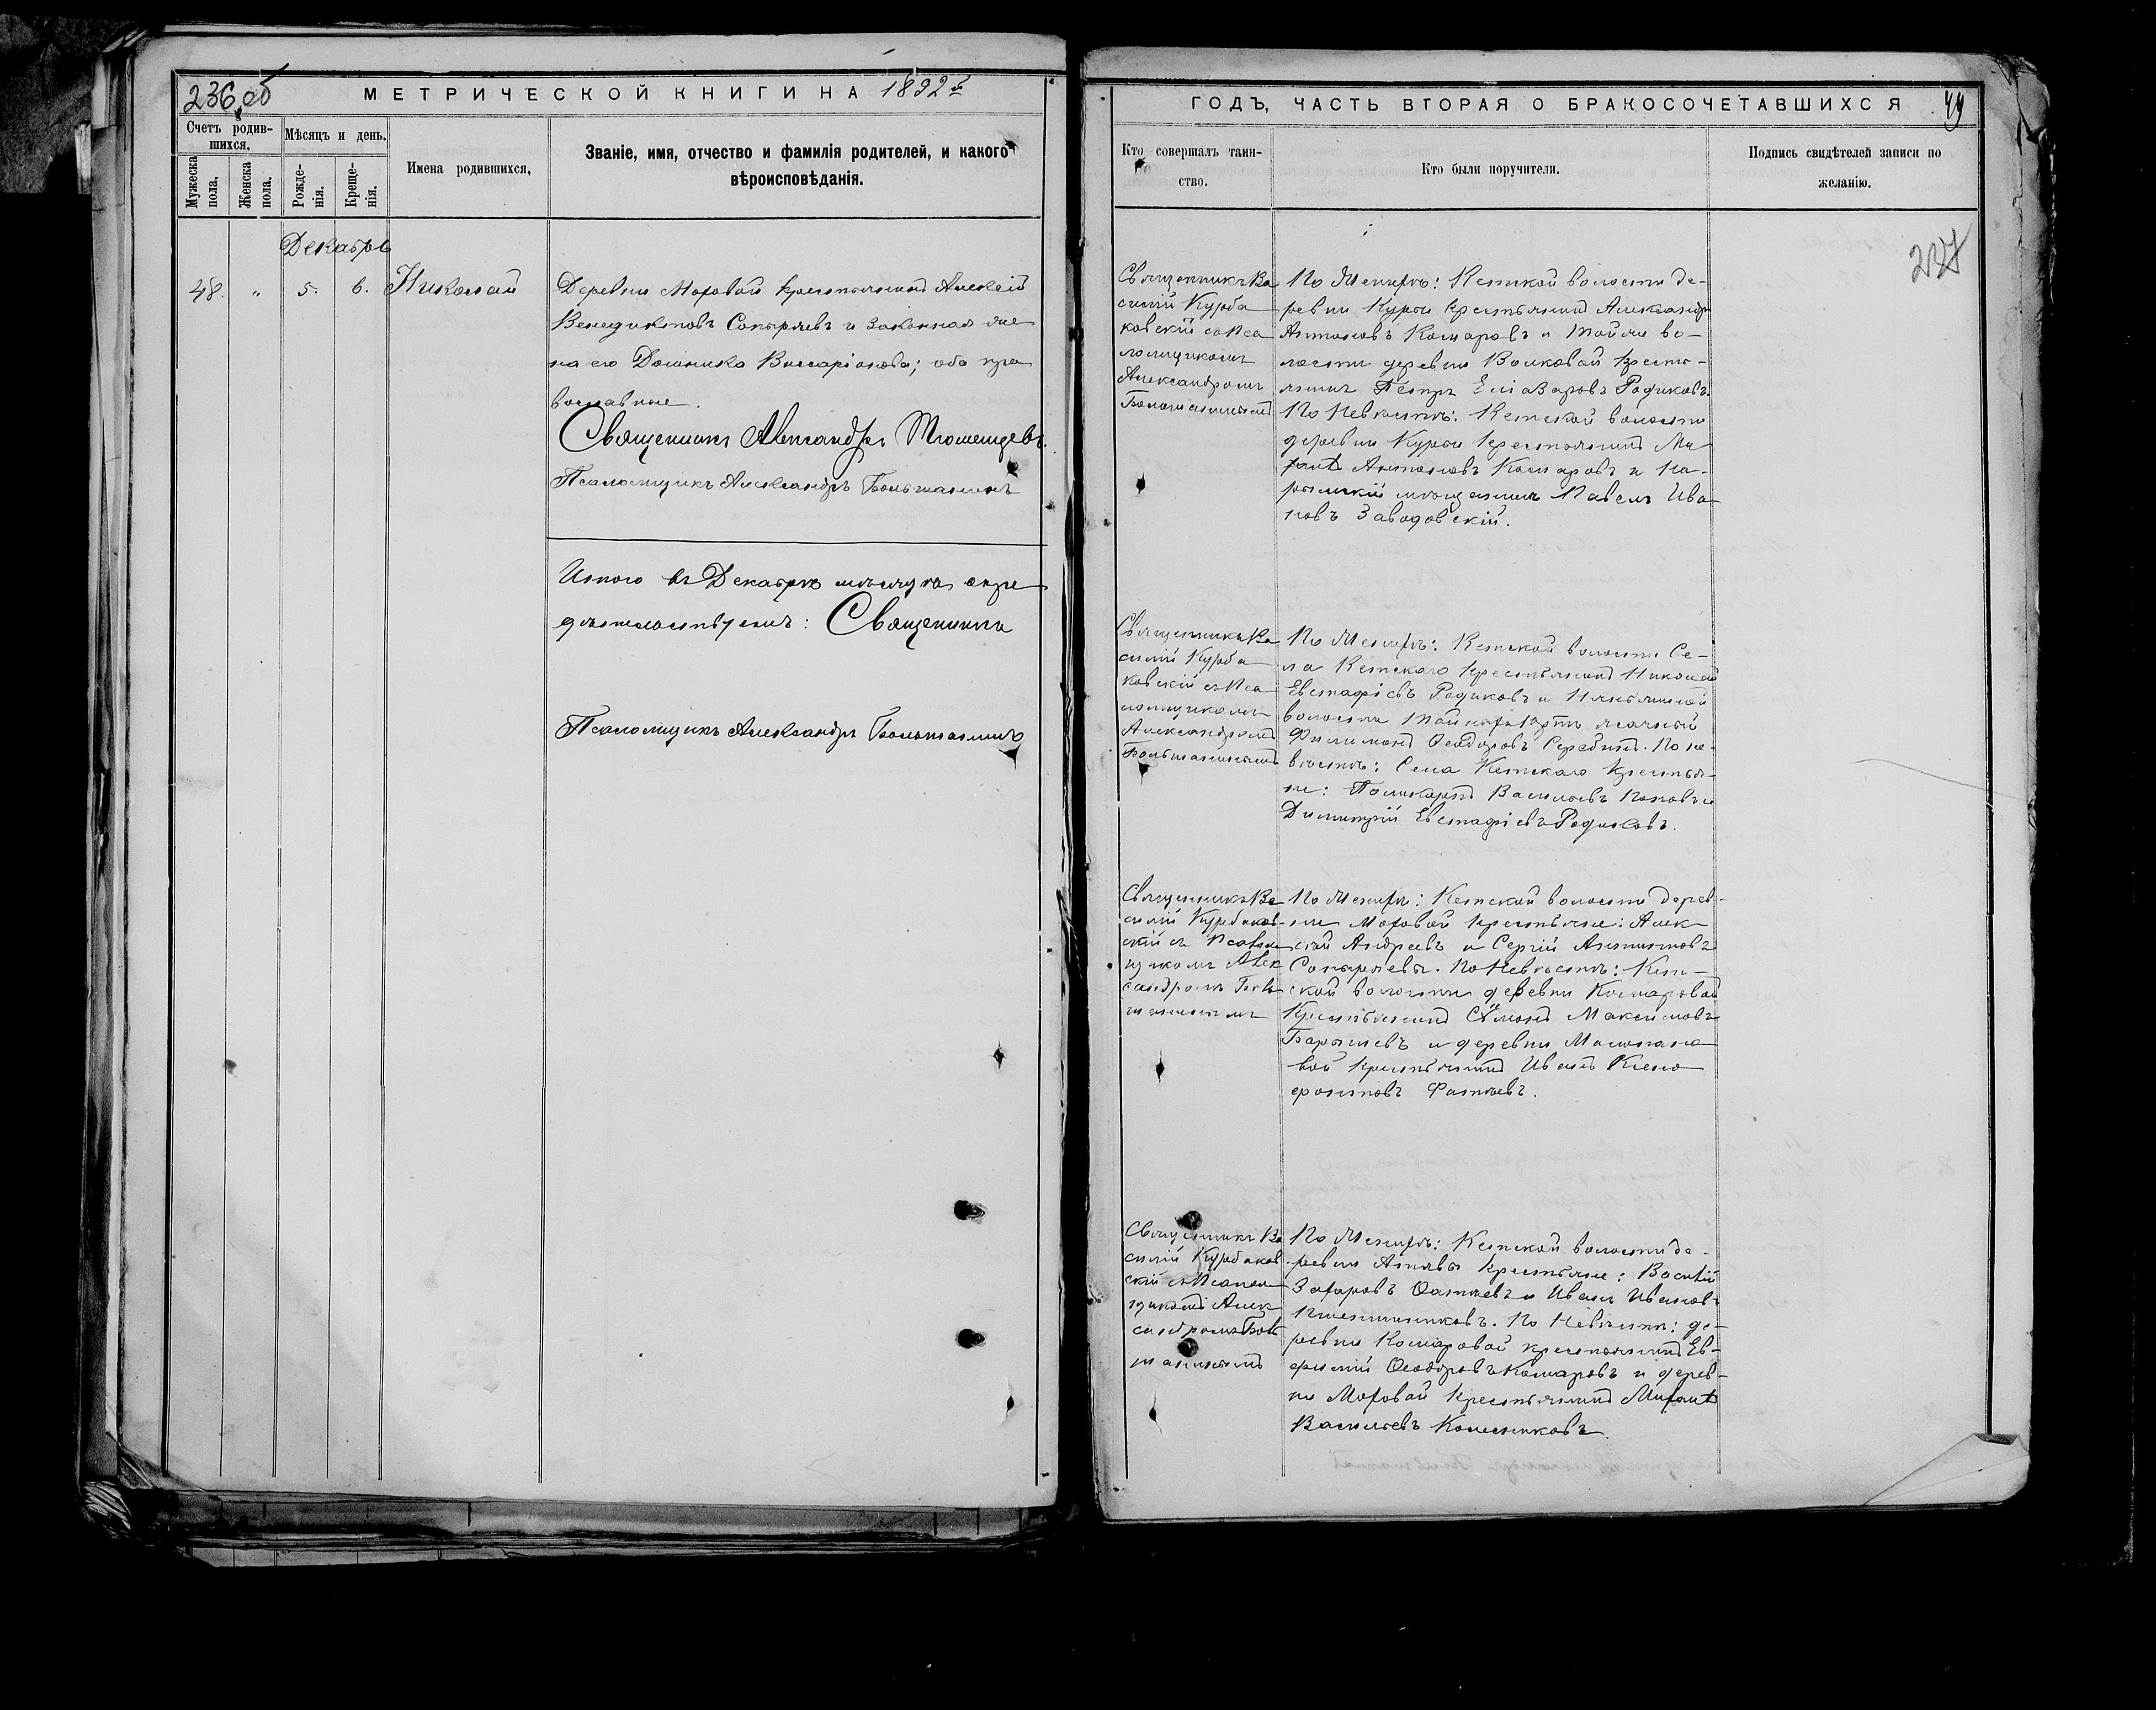 236 об
МЕТРИЧЕСКОЙ КНИГИ НА 1892 й
Счетъ родив-
шихся.
Мужеска
пола,
Женска
пола.
Мѣсяцъ и день.
Рожде-
нія.
Креще-
нія.
Имена родившихся,
Званіе, имя, отчество и фамилія родителей, и какого
вѣроисповѣданія.
Декабрь
48. „ 5. 6. Николай
Деревни Моховой крестьянинъ Алексѣй
Венедиктовъ Сопыряевъ и законная же
на его Домника Виссаріонова; оба пра
вославные.
Священникъ Александръ Тюменцевъ.
Псаломщикъ Александръ Большанинъ
Итого въ Декабрѣ мѣсяцѣ
Священникъ
Псаломщикъ Александръ Большанинъ
ГОДЪ, ЧАСТЬ ВТОРАЯ О БРАКОСОЧЕТАВШИХСЯ
49
Кто совершалъ таин-
ство.
Кто были поручители.
Подпись свидѣтелей записи по
желанію.
237
Священникъ Ва
силій Курба
ковскій съ Пса
ломщикомъ
Александромъ
Большанинымъ
По Женихѣ: Кетской волости де-
ревни Курьи крестьянинъ Александръ
Антоновъ Комаровъ и тойже во-
лости деревни Волковой кресть-
янинъ Петръ Еліазаровъ Родиковъ.
По Невѣстѣ: Кетской волости
деревни Курьи крестьянинъ Ми
хаилъ Антоновъ Комаровъ и На-
рымскій мѣщанинъ Павелъ Ива
новъ Заводовскій.
Священникъ Ва
силій Курба
ковскій съ Пса
ломщикомъ
Александромъ
Большанинымъ
По Женихѣ: Кетской волости Се-
ла Кетскаго крестьянинъ Николай
Евстафіевъ Родиковъ и
волости ясачный
Филимонъ Ѳеодоровъ Серебинъ. По не-
вѣстѣ: Села Кетскаго крестья-
не: Поликарпъ Васильевъ Поповъ и
Димитрій Евстафіевъ Родиковъ.
Священникъ Ва
силій Курбаков-
скій съ Псалом
щикомъ Алек
сандромъ Боль
шанинымъ
По Женихѣ: Кетской волости дерев-
ни Моховой крестьяне: Алек
сѣй Андреевъ и Сергій Антиповъ
Сопыряевы. По Невѣстѣ: Кет-
ской волости деревни Комаровой
Крестьянинъ Симонъ Максимовъ
Барышевъ и деревни
вой крестьянинъ Иванъ Ксено
фонтовъ Фатѣевъ.
Священникъ Ва
силій Курбаков-
скій съ Псалом
щикомъ Алек
сандромъ Боль
шанинымъ
По Женихѣ: Кетской волости де-
ревни крестьяне: Василій
Захаровъ Ѳатѣевъ и Иванъ Ивановъ
Пшенишниковъ. По Невѣстѣ: де-
ревни Комаровой крестьянинъ Ев-
фимій Ѳеодоровъ Комаровъ и дерев-
ни Моховой крестьянинъ Михаилъ
Васильевъ Колесниковъ.